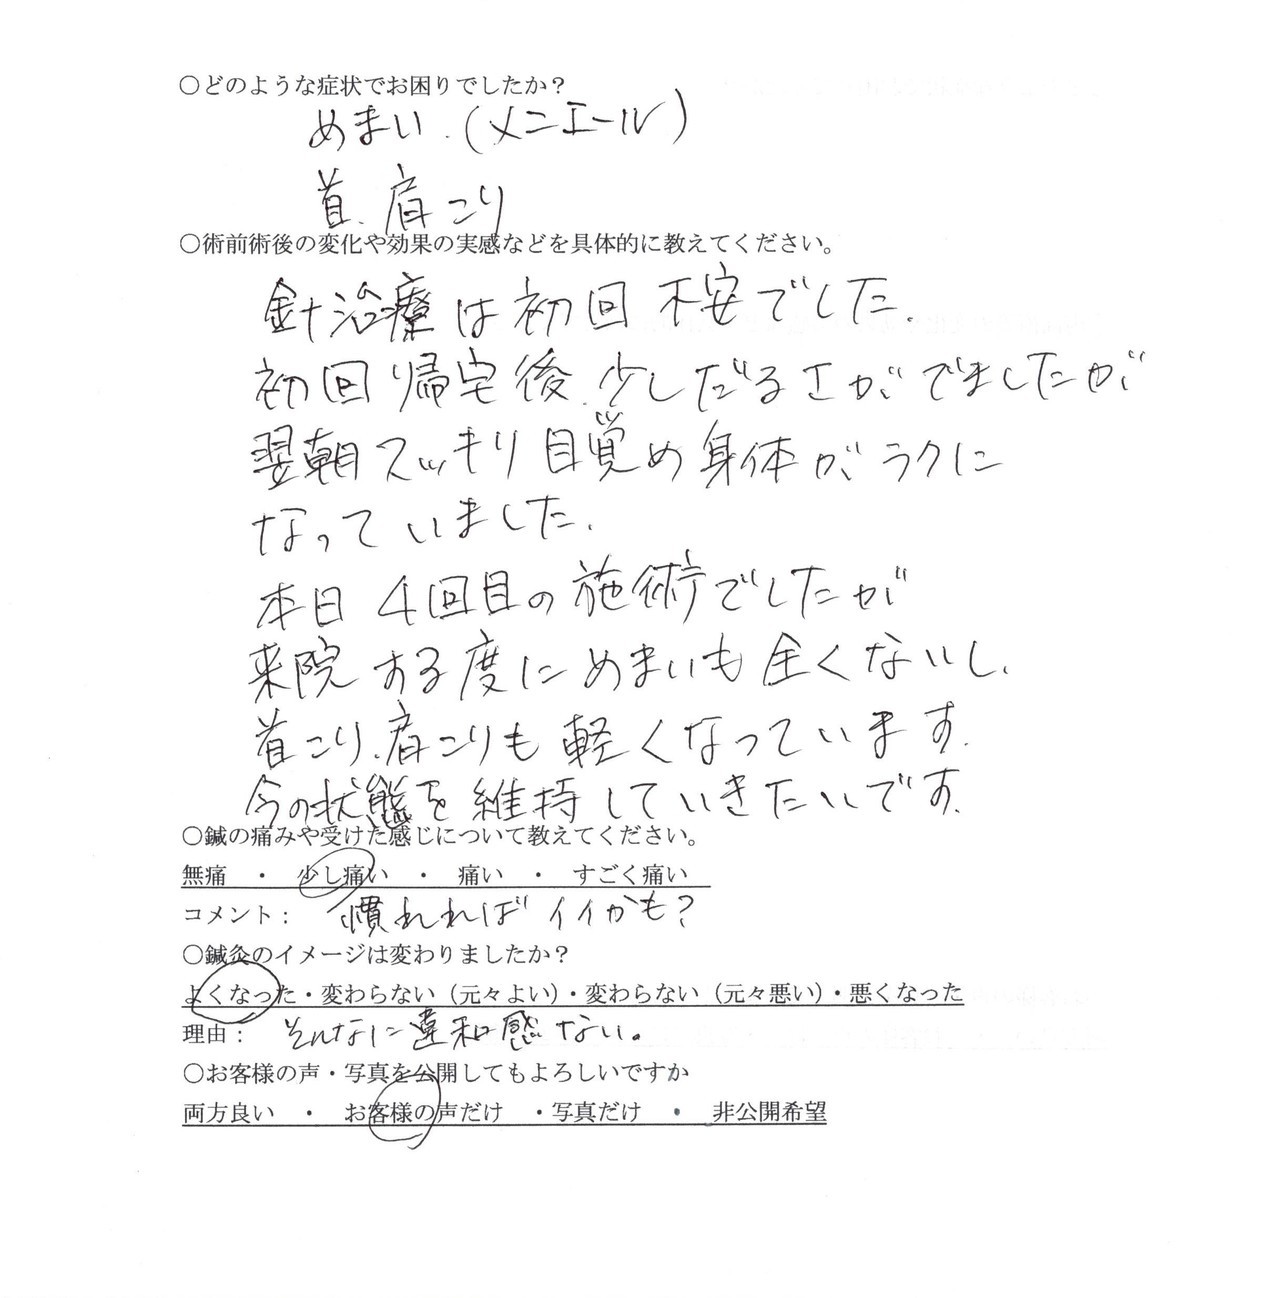 ○どのような症状でお困りでしたか？
めまい.(メニエール)
首、肩こり
○術前術後の変化や効果の実感などを具体的に教えてください。
針治療は初回不安でした.
初回帰宅後、少しだるさがでましたが
翌朝スッキり目覚め身体がラクに
なっていました.
本日4回目の施術でしたが
来院する度にめまいも全くないし、
首こり、肩こりも軽くなっています.
今の状態を維持していきたいです.
○鍼の痛みや受けた感じについて教えてください。
無痛　・　少し痛い　・　痛い　・　すごく痛い
コメント：　慣れればイイかも?
○鍼灸のイメージは変わりましたか？
よくなった・変わらない（元々よい）・変わらない（元々悪い）・悪くなった
理由：　そんなに違和感ない。
○お客様の声・写真を公開してもよろしいですか
両方良い　・　お客様の声だけ　・写真だけ　・　非公開希望